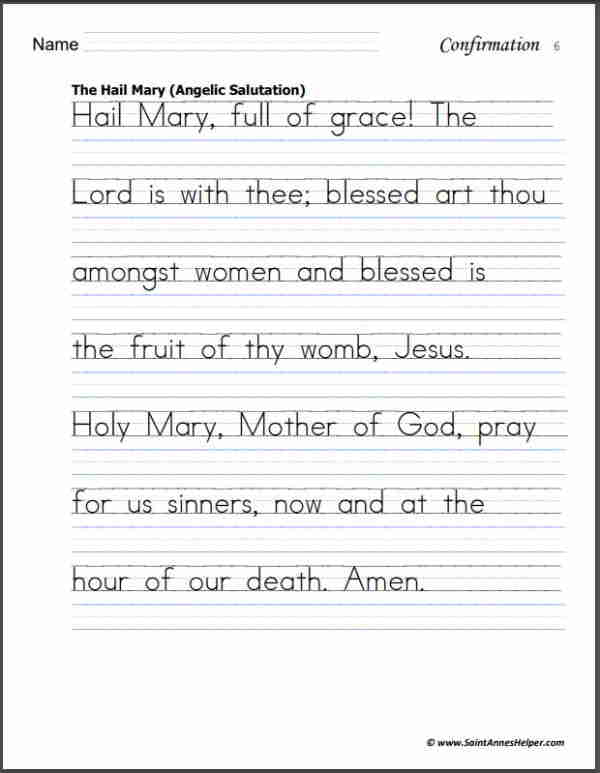 Name Confirmation 6
The Hail Mary (Angelic Salutation)
Hail Mary, full of grace! The
Lord is with thee; blessed art thou
amongst women and blessed is
the fruit of thy womb, Jesus.
Holy Mary, Mother of God, pray
for us sinners, now and at the
hour of our death. Amen.
© www.SaintAnnesHelper.com